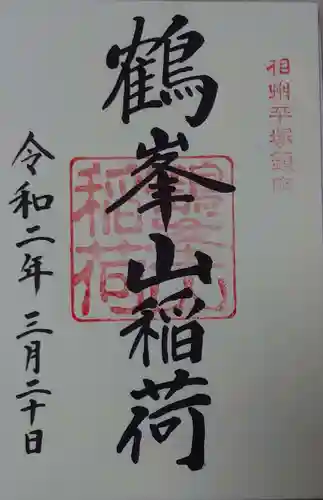 相州平塚鎮座
鶴峯山稲荷
鶴峯山
稲荷
令和二年三月二十日